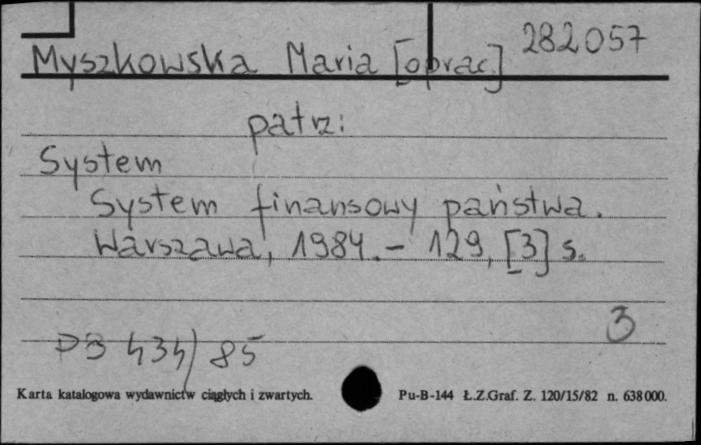 282057
Myszkowska Maria [oprac.]
patrz:
System
System finansowy państwa.
Warszawa, 1984. - 129, [3] s.
3
PB 434/85
Karta katalogowa wydawnictw ciągłych i zwartych. Pu-B-144 Ł.Z.Graf. Z. 120/15/82 n. 638000.